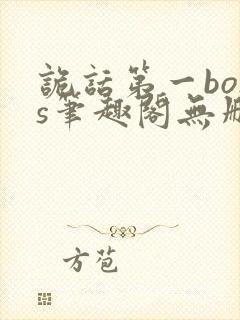 詭話第一bo
s筆趣閣無刪
方苞